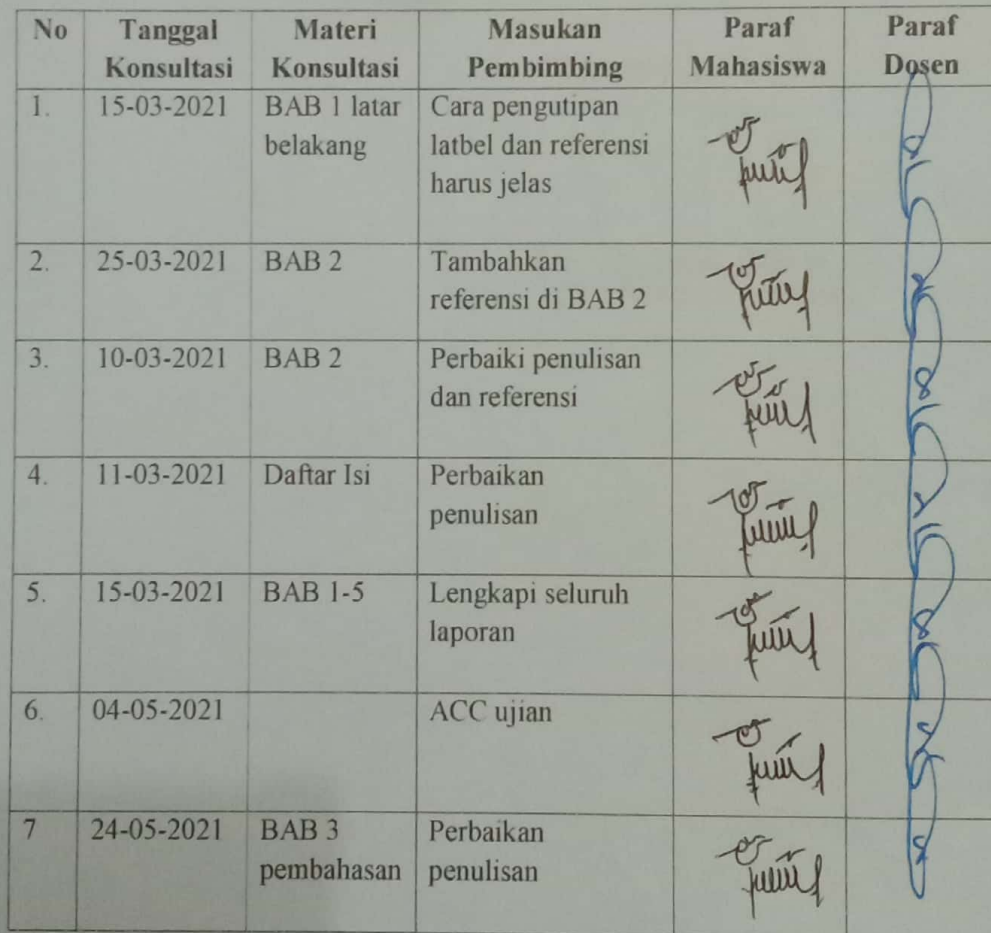 No Tanggal Konsultasi Materi Konsultasi Masukan Pembimbing Paraf Mahasiswa Paraf Dosen
1. 15-03-2021 BAB 1 latar belakang Cara pengutipan latbel dan referensi harus jelas
2. 25-03-2021 BAB 2 Tambahkan referensi di BAB 2
3. 10-03-2021 BAB 2 Perbaiki penulisan dan referensi
4. 11-03-2021 Daftar Isi Perbaikan penulisan
5. 15-03-2021 BAB 1-5 Lengkapi seluruh laporan
6. 04-05-2021 ACC ujian
7 24-05-2021 BAB 3 pembahasan Perbaikan penulisan